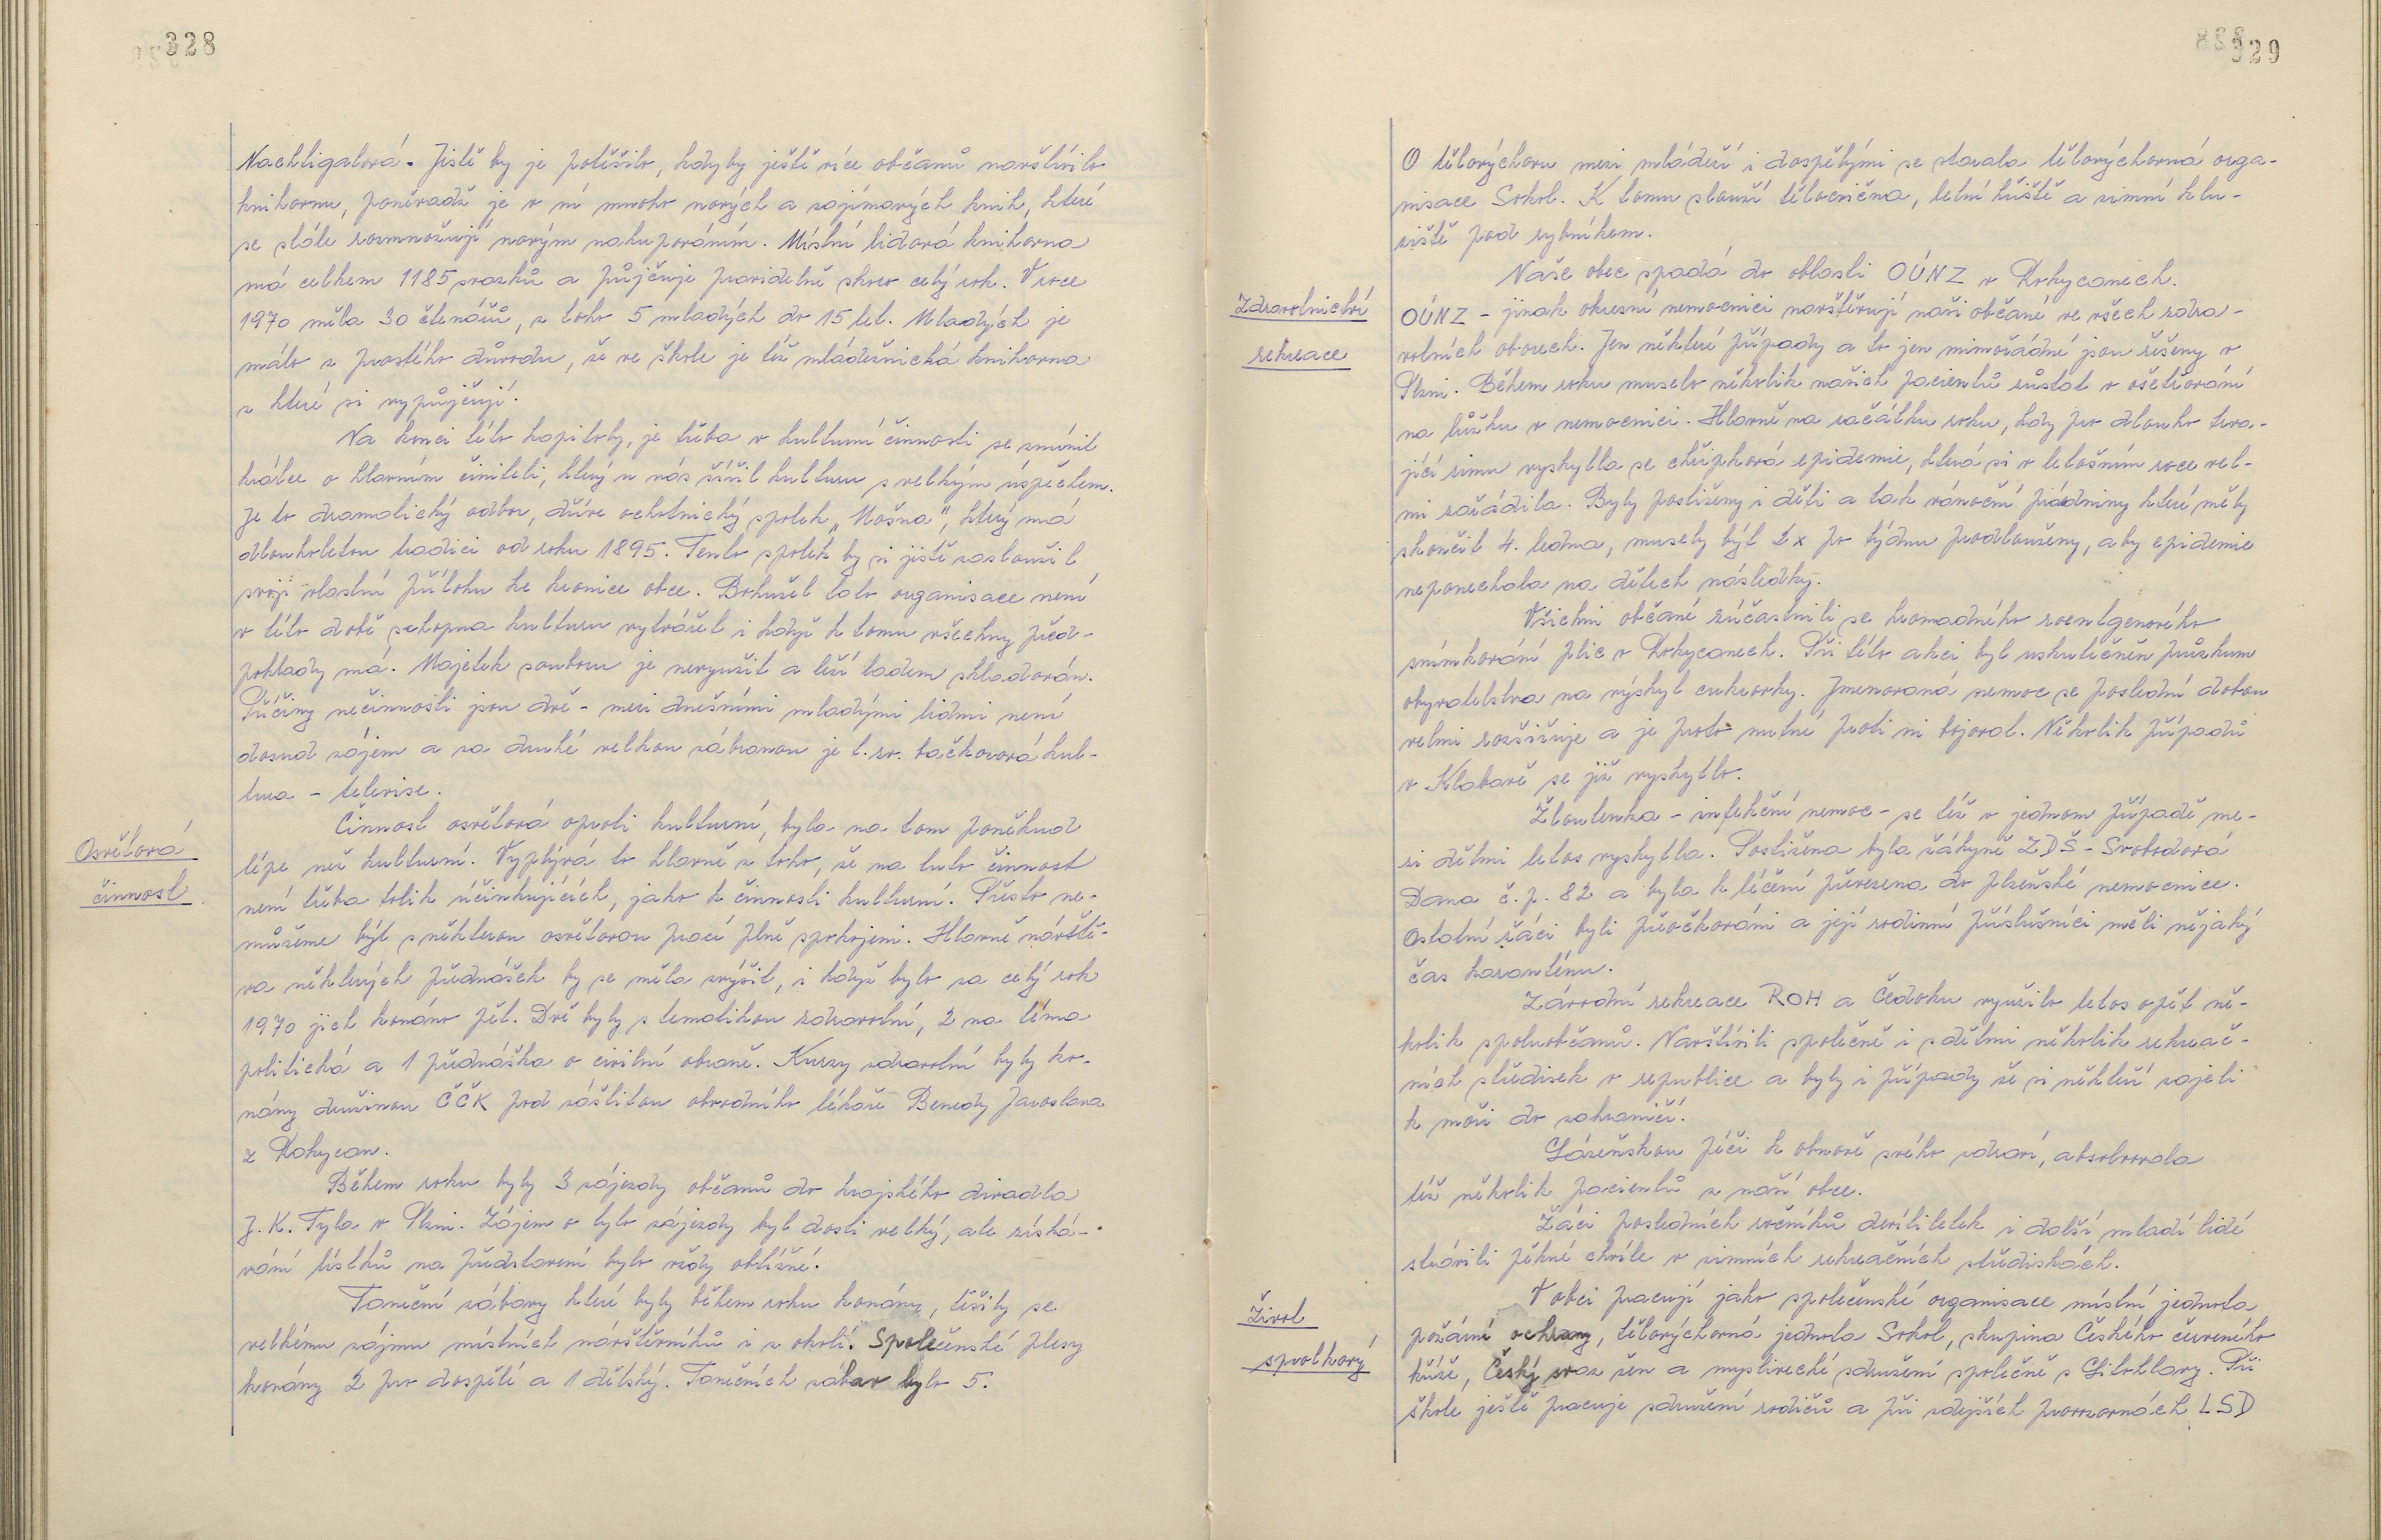 328
Nachtigalová. Jistě by je potěšilo, kdyby ještě více občanů navštívilo
knihovnu, poněvadž je v ní mnoho nových a zajímavých knih, které
se stále rozmnožují novým nakupováním. Místní lidová knihovna
má celkem 1185 svazků a půjčuje pravidelně skrze celý rok. V roce
1970 měla 30 čtenářů, z toho 5 mladých do 15 let. Mladých je
málo z prostého důvodu, že ve škole je též mládežnická knihovna
z které si vypůjčují.
Na konci této kapitoly, je třeba v kulturní činnosti se zmínit
krátce o hlavním činiteli, který u nás šířil kulturu s velkým úspěchem.
Je to dramatický odbor, dříve ochotnický spolek „Mošna", který má
dlouholetou tradici od roku 1895. Tento spolek by si jistě zasloužil
svoji vlastní přílohu ke kronice obce. Bohužel tato organisace není
v této době schopna kulturu vytvářet i když k tomu všechny před-
poklady má. Majetek souboru je nevyužit a leží ladem skladován.
Příčiny nečinnosti jsou dvě - mezi dnešními mladými lidmi není
dosud zájem a za druhé velkou zábranou je t. zv. bačkorová kul-
tura - televise.
Osvětová
činnost
Činnost osvětová oproti kulturní, byla na tom poněkud
lépe než kulturní. Vyplývá to hlavně z toho, že na tuto činnost
není třeba tolik účinkujících, jako k činnosti kulturní. Přesto ne-
můžeme být s některou osvětovou prací plně spokojeni. Hlavně návště-
va některých přednášek by se měla zvýšit, i když bylo za celý rok
1970 jich konáno pět. Dvě byly s tematikou zdravotní, 2 na téma
politická a 1 přednáška o civilní obraně. Kurzy zdravotní byly ko-
nány družinou ČČK pod záštitou obvodního lékaře Benedy Jaroslava
z Rokycan.
Během roku byly 3 zájezdy občanů do krajského divadla
J. K. Tyla v Plzni. Zájem o tyto zájezdy byl dosti velký, ale získá-
vání lístků na představení bylo vždy obtížné.
Taneční zábavy které byly během roku konány, těšily se
velkému zájmu místních návštěvníků i z okolí. Společenské plesy
konány 2 pro dospělé a 1 dětský. Tanečních zábav bylo 5.
329
O tělovýchovu mezi mládeží i dospělými se starala tělovýchovná orga-
nisace Sokol. K tomu slouží tělocvična, letní hřiště a zimní klu-
ziště pod rybníkem.
Zdravotnictví
rekreace
Naše obec spadá do oblasti OÚNZ v Rokycanech.
OÚNZ - jinak okresní nemocnici navštěvují naši občané ve všech zdra-
votních oborech. Jen některé případy a to jen mimořádné jsou řešeny v
Plzni. Během roku muselo několik našich pacientů zůstat v ošetřování
na lůžku v nemocnici. Hlavně na začátku roku, kdy pro dlouho trva-
jící zimu vyskytla se chřipková epidemie, která si v letošním roce vel-
mi zařádila. Byly postiženy i děti a tak vánoční prázdniny které měly
skončit 4. ledna, musely být 2x po týdnu prodlouženy, aby epidemie
neponechala na dětech následky.
Všichni občané zúčastnili se hromadného roentgenového
snímkování plic v Rokycanech. Při této akci byl uskutečněn průzkum
obyvatelstva na výskyt cukrovky. Jmenovaná nemoc se poslední dobou
velmi rozšiřuje a je proto nutné proti ni bojovat. Několik případů
v Klabavě se již vyskytlo.
Žloutenka - infekční nemoc - se též v jednom případě me-
zi dětmi letos vyskytla. Postižena byla žákyně ZDŠ - Svobodová
Dana č. p. 82 a byla k léčení převezena do plzeňské nemocnice.
Ostatní žáci byli přeočkováni a její rodinní příslušníci měli nějaký
čas karanténu.
Závodní rekreace ROH a Čedoku využilo letos opět ně-
kolik spoluobčanů. Navštívili společně i s dětmi několik rekreač-
ních středisek v republice a byly i případy že si někteří zajeli
k moři do zahraničí.
Lázeňskou péči k obnově svého zdraví, absolvovala
též několik pacientů z naší obce.
Žáci posledních ročníků devítiletek i další mladí lidé
strávili pěkné chvíle v zimních rekreačních střediskách.
Život
spolkový
V obci pracují jako společenské organisace místní jednota
požární ochrany, tělovýchovná jednota Sokol, skupina Českého červeného
kříže, Český svaz žen a myslivecké sdružení společně s Litohlavy. Při
škole ještě pracuje sdružení rodičů a při zdejších provozovnách LSD